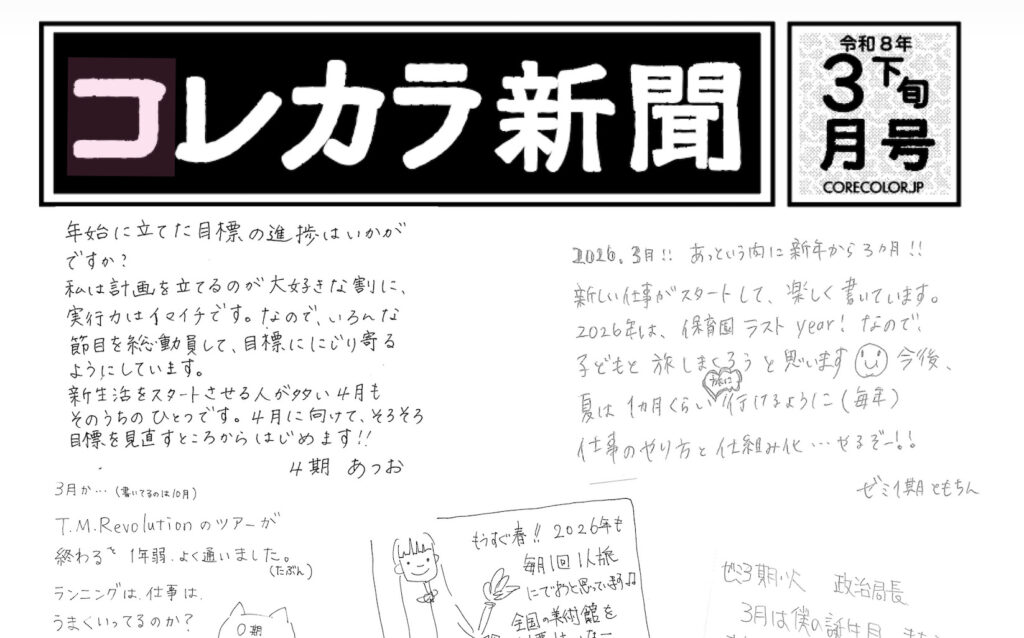 コレカラ新聞
令和8年
3月
下旬
号
CORECOLOR.JP
年始に立てた目標の進捗はいかが
ですか？
私は計画を立てるのが大好きな割に、
実行力はイマイチです。なので、いろんな
節目を総動員して、目標ににじり寄る
ようにしています。
新生活をスタートさせる人が多い4月も
そのうちのひとつです。4月に向けて、そろそろ
目標を見直すところからはじめます!!
4期 あつお
2026.3月!! あっという間に新年から3ヵ月!!
新しい仕事がスタートして、楽しく書いています。
2026年は、保育園ラストyear! なので、
子どもと旅しまくろうと思います 今後、
夏は1カ月くらい旅に行けるように(毎年)
仕事のやり方と仕組み化…せるぞー!!
ゼミ1期ともちん
3月か…(書いてるのは10月)
T.M.Revolutionのツアーが
終わるで 1年弱、よく通いました。
(たぶん)
ランニングは、仕事は、
うまくいってるのか？
0期
もうすぐ春!! 2026年も
毎月1回1人旅
にでようと思っています♫
全国の美術館を
政治局長
3月は僕の誕生月